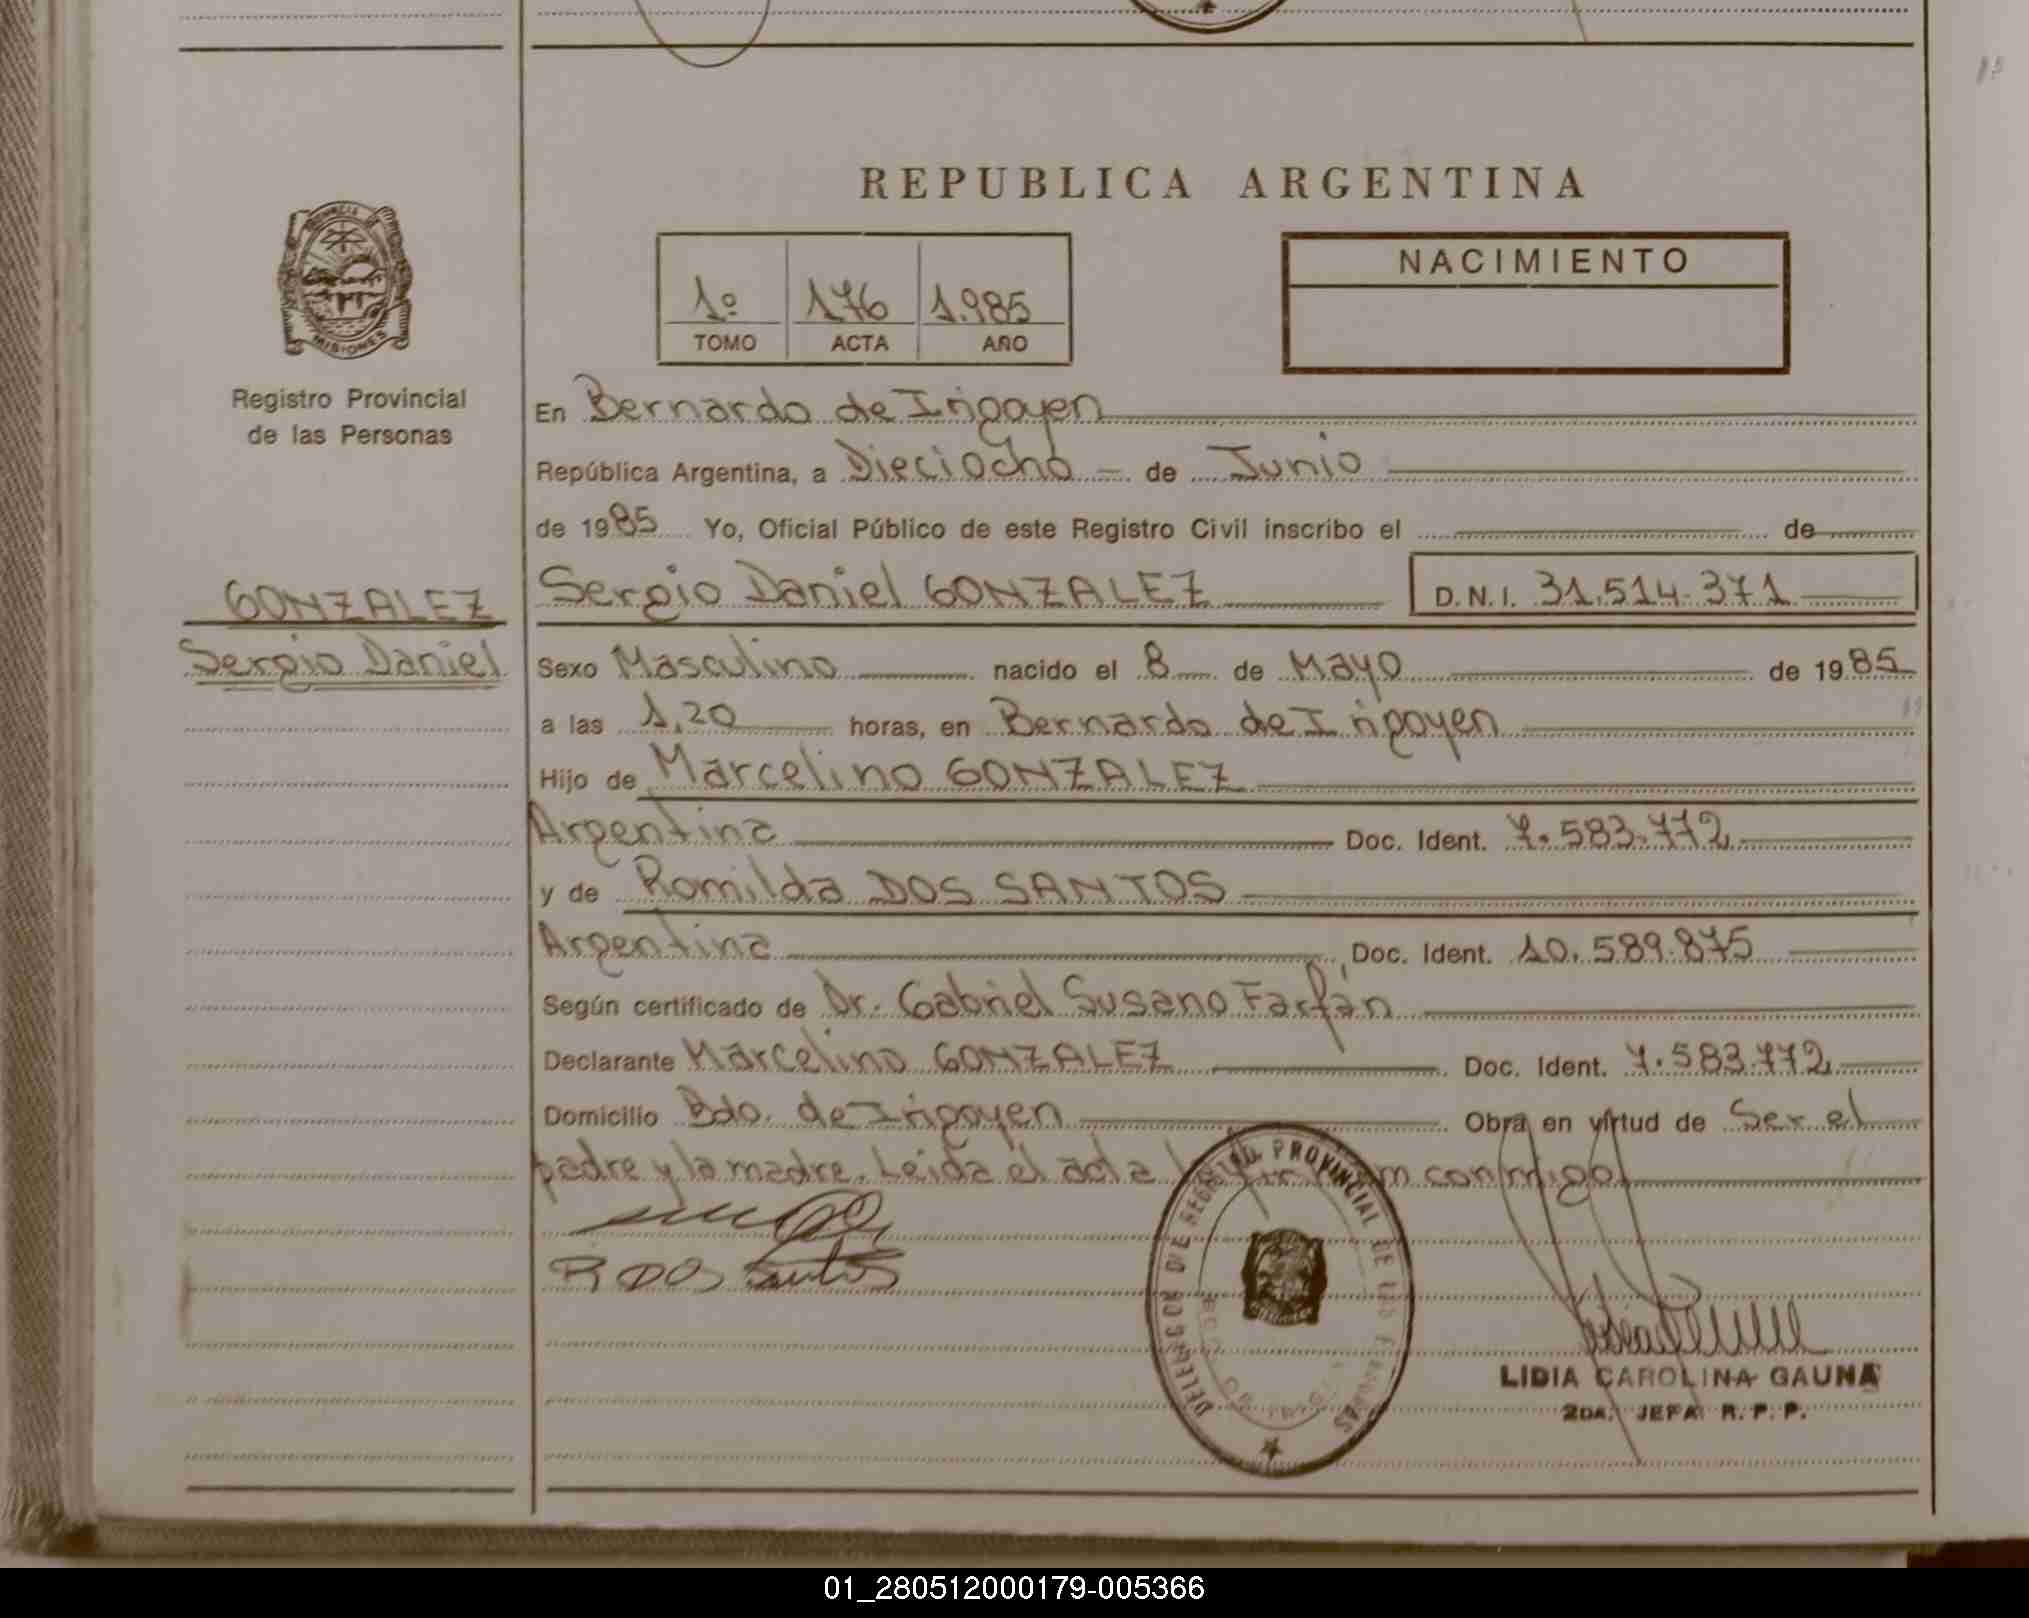 REPUBLICA ARGENTINA
PROVINCIA DE
MISIONES
Registro Provincial
de las Personas
1º 176 1.985
TOMO ACTA AÑO
NACIMIENTO
En Bernardo de Irigoyen
República Argentina, a Dieciocho de Junio
de 1985 Yo, Oficial Público de este Registro Civil inscribo el de
GONZALEZ
Sergio Daniel
Sergio Daniel GONZALEZ D.N.I. 31.514.371
Sexo Masculino nacido el 8 de Mayo de 1985
a las 1,20 horas, en Bernardo de Irigoyen
Hijo de Marcelino GONZALEZ
Argentina Doc. Ident. 7.583.772
y de Romilda DOS SANTOS
Argentina Doc. Ident. 10.589.875
Según certificado de Dr. Gabriel Susano Farfán
Declarante Marcelino GONZALEZ Doc. Ident. 7.583.772
Domicilio Bdo. de Irigoyen Obra en virtud de Ser el
padre y la madre. Leida el acta conmigo
R DOS Santos
REGISTRO PROVINCIAL DE LAS PERSONAS
LIDIA CAROLINA GAUNA
2DA. JEFA R. P. P.
01_280512000179-005366